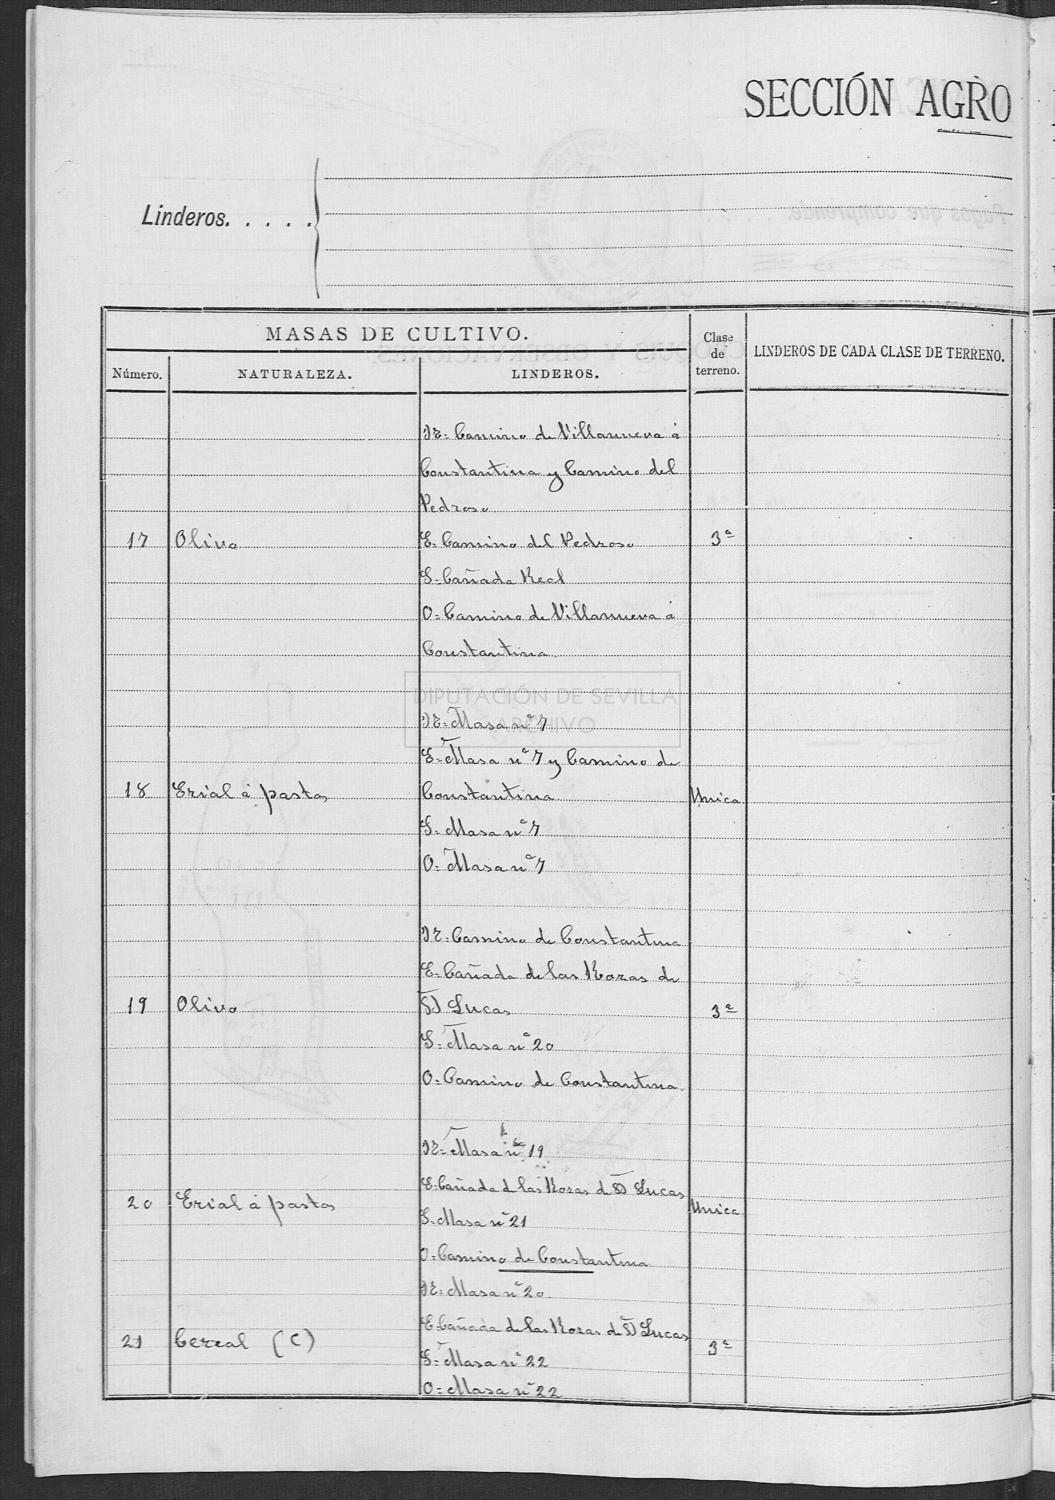 SECCIÓN AGRO
Linderos. . . . .
MASAS DE CULTIVO.
Clase de terreno.
LINDEROS DE CADA CLASE DE TERRENO.
Número.
NATURALEZA.
LINDEROS.
N= Camino de Villanueva á
Constantina y Camino del
Pedroso
17 Olivo E- Camino del Pedroso 3ª
S- Cañada Real
O- Camino de Villanueva á
Constantina
DIPUTACIÓN DE SEVILLA
ARCHIVO
N= Masa nº 7
E- Masa nº 7 y Camino de
18 Erial á pastos Constantina Unica
S- Masa nº 7
O= Masa nº 7
N- Camino de Constantina
E- Cañada de las Rozas de
19 Olivo D Lucas 3ª
S- Masa nº 20
O- Camino de Constantina
N- Masa nº 19
E- Cañada de las Rozas de D Lucas
20 Erial á pastos Unica
S- Masa nº 21
O- Camino de Constantina
N- Masa nº 20
E- Cañada de las Rozas de D Lucas
21 Cereal (C) 3ª
S- Masa nº 22
O- Masa nº 22